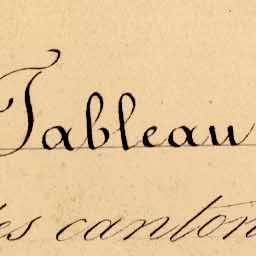 Tableau
des canton